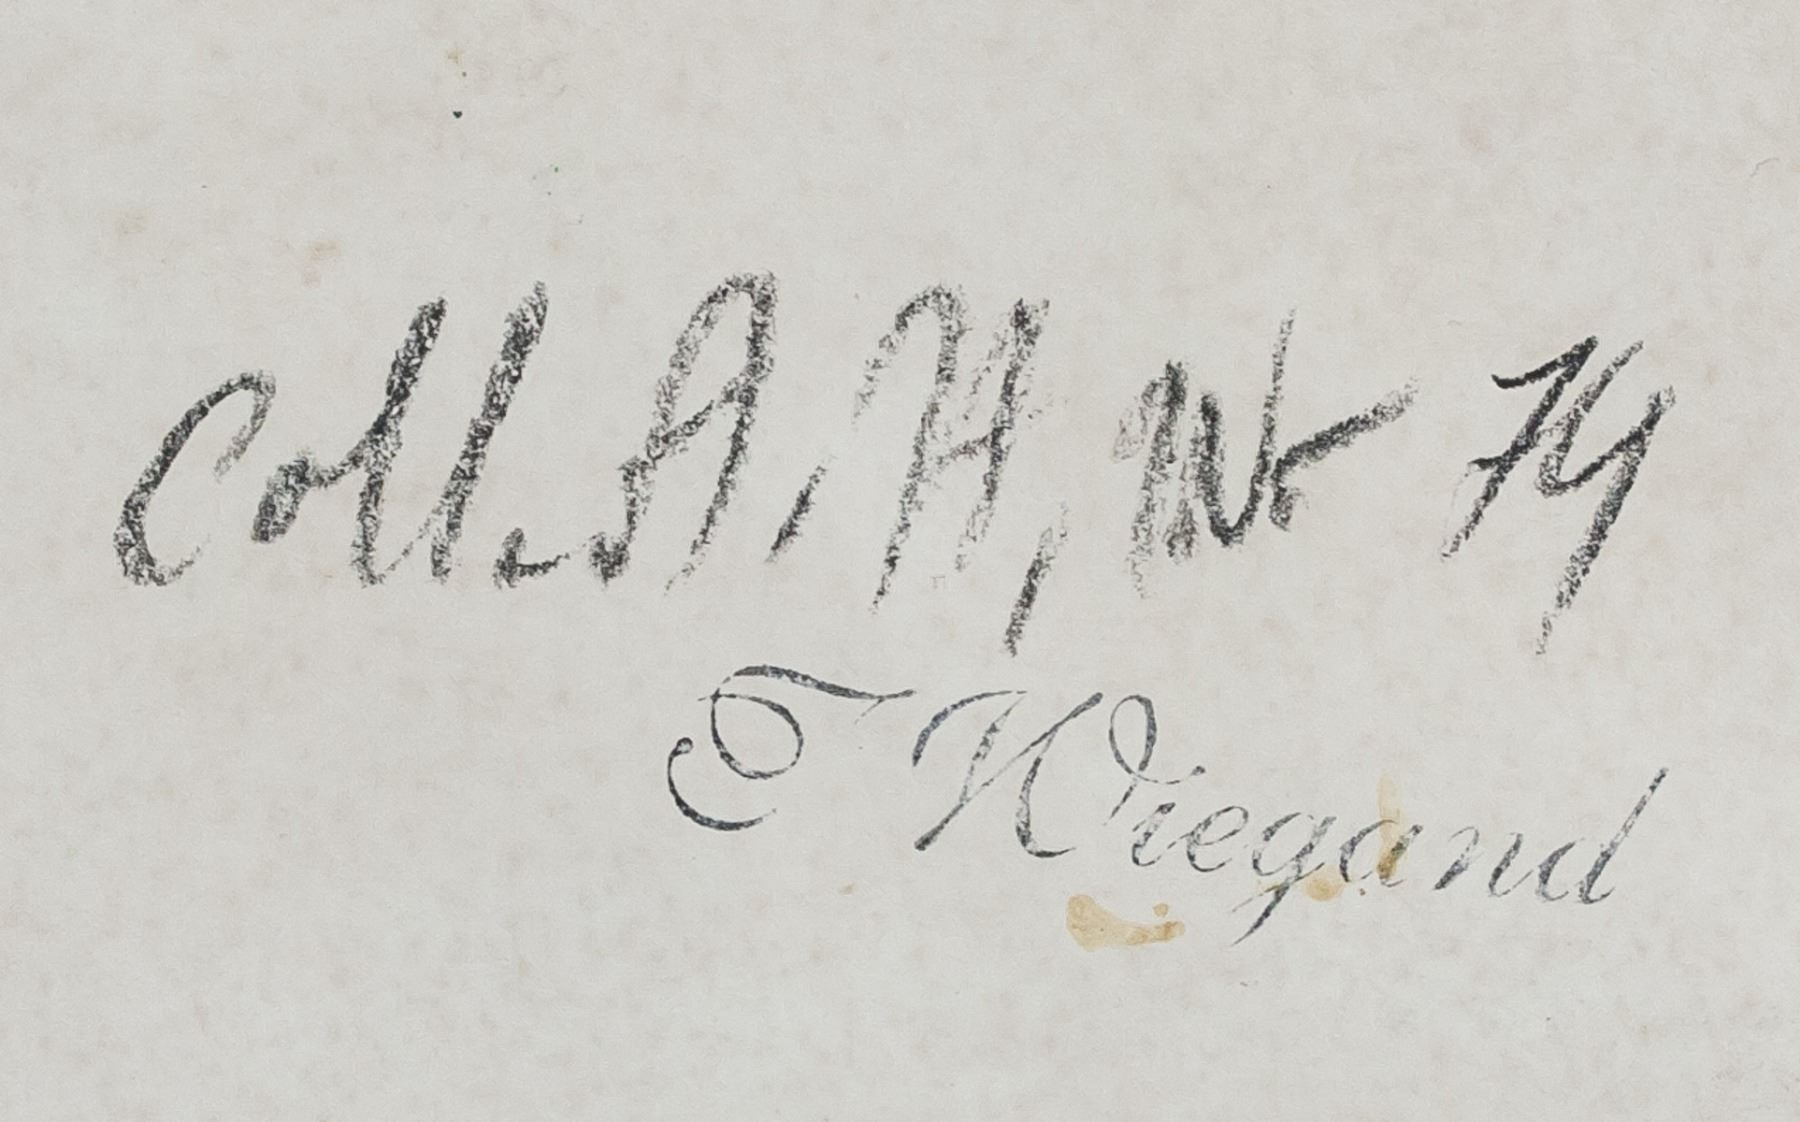 Coll. A. H. Nr 74
E Wiegand